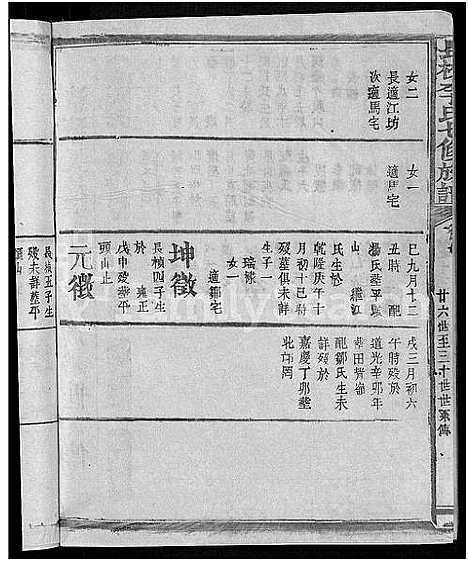 李氏七修族譜
廿六世至三十世世系傳
女二
長適江坊
次適馬宅
女一
適周宅
巳九月十二
丑時 配
楊氏葬平
山
氏生於
乾隆庚午十
月初十巳時
歿葬俱未詳
生子一
瑞
女一
適鄒宅
坤徵
長楨四子生
於 雍正
戊申歿葬平
頭山正
元徵
戌三月初六
午時歿於
道光辛卯年
葬田背
配鄒氏生未
詳歿於
嘉慶丁卯葬
長楨五子生
歿未詳葬平
頭山